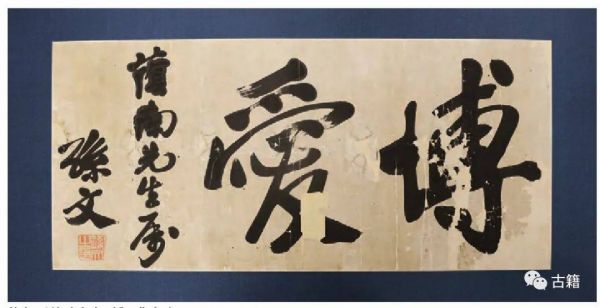 博愛
南先生属
孫文
古籍